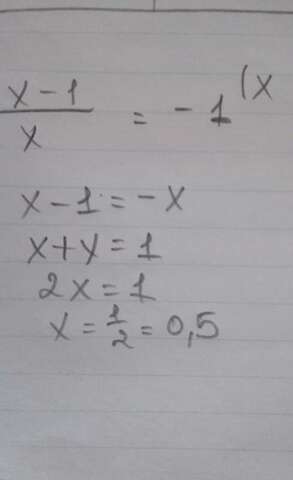 x-1/x = -1 (x
x-1=-x
x+x=1
2x=1
x=1/2=0,5